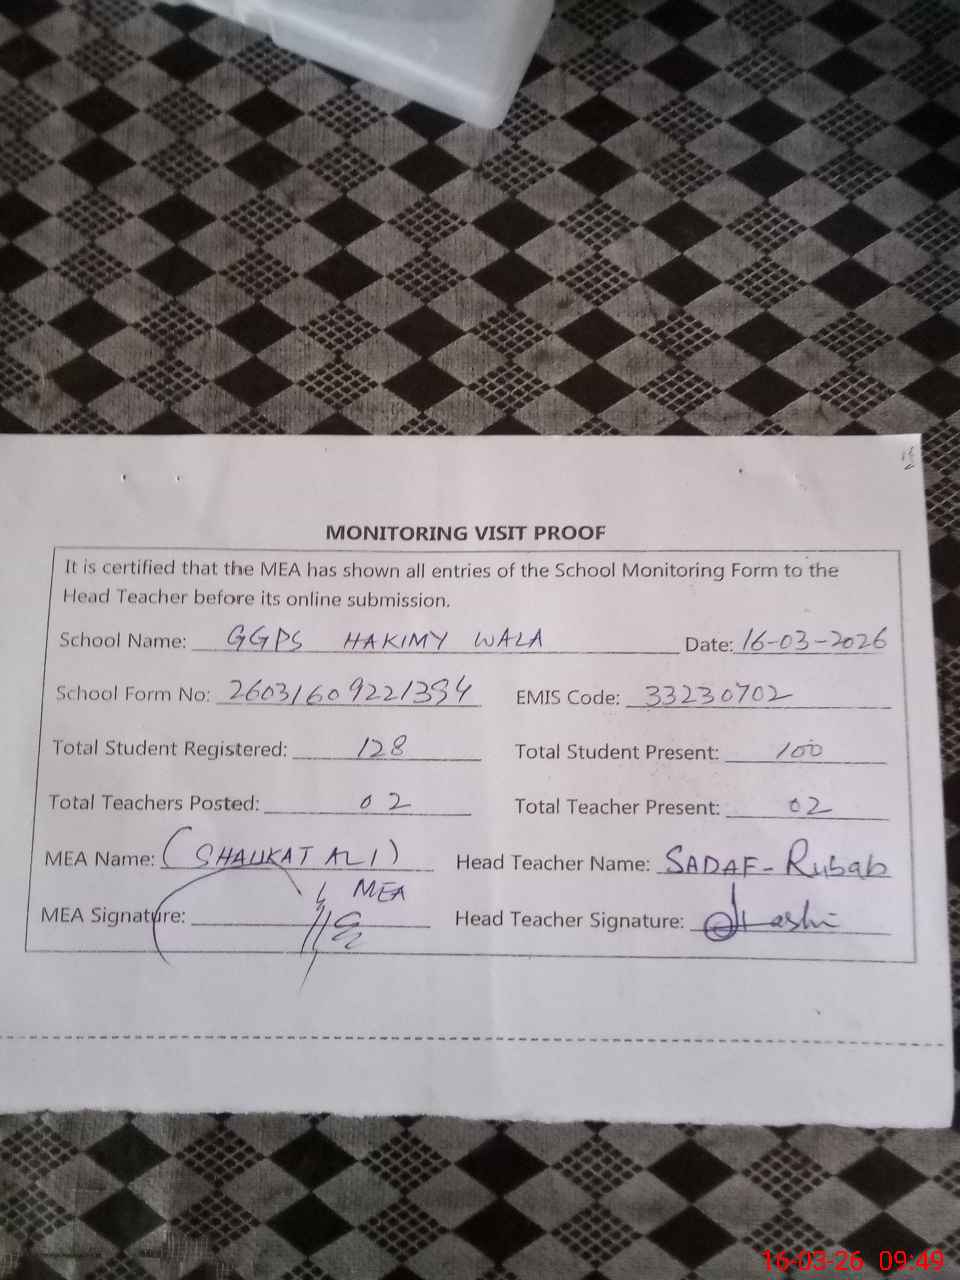 MONITORING VISIT PROOF
It is certified that the MEA has shown all entries of the School Monitoring Form to the
Head Teacher before its online submission.
School Name: GGPS HAKIMY WALA Date: 16-03-2026
School Form No: 260316092213S4 EMIS Code: 33230702
Total Student Registered: 128 Total Student Present: 100
Total Teachers Posted: 02 Total Teacher Present: 02
MEA Name: (SHAUKAT ALI) Head Teacher Name: SADAF-Rubab
MEA
MEA Signature: Head Teacher Signature:
16-03-26 09:49